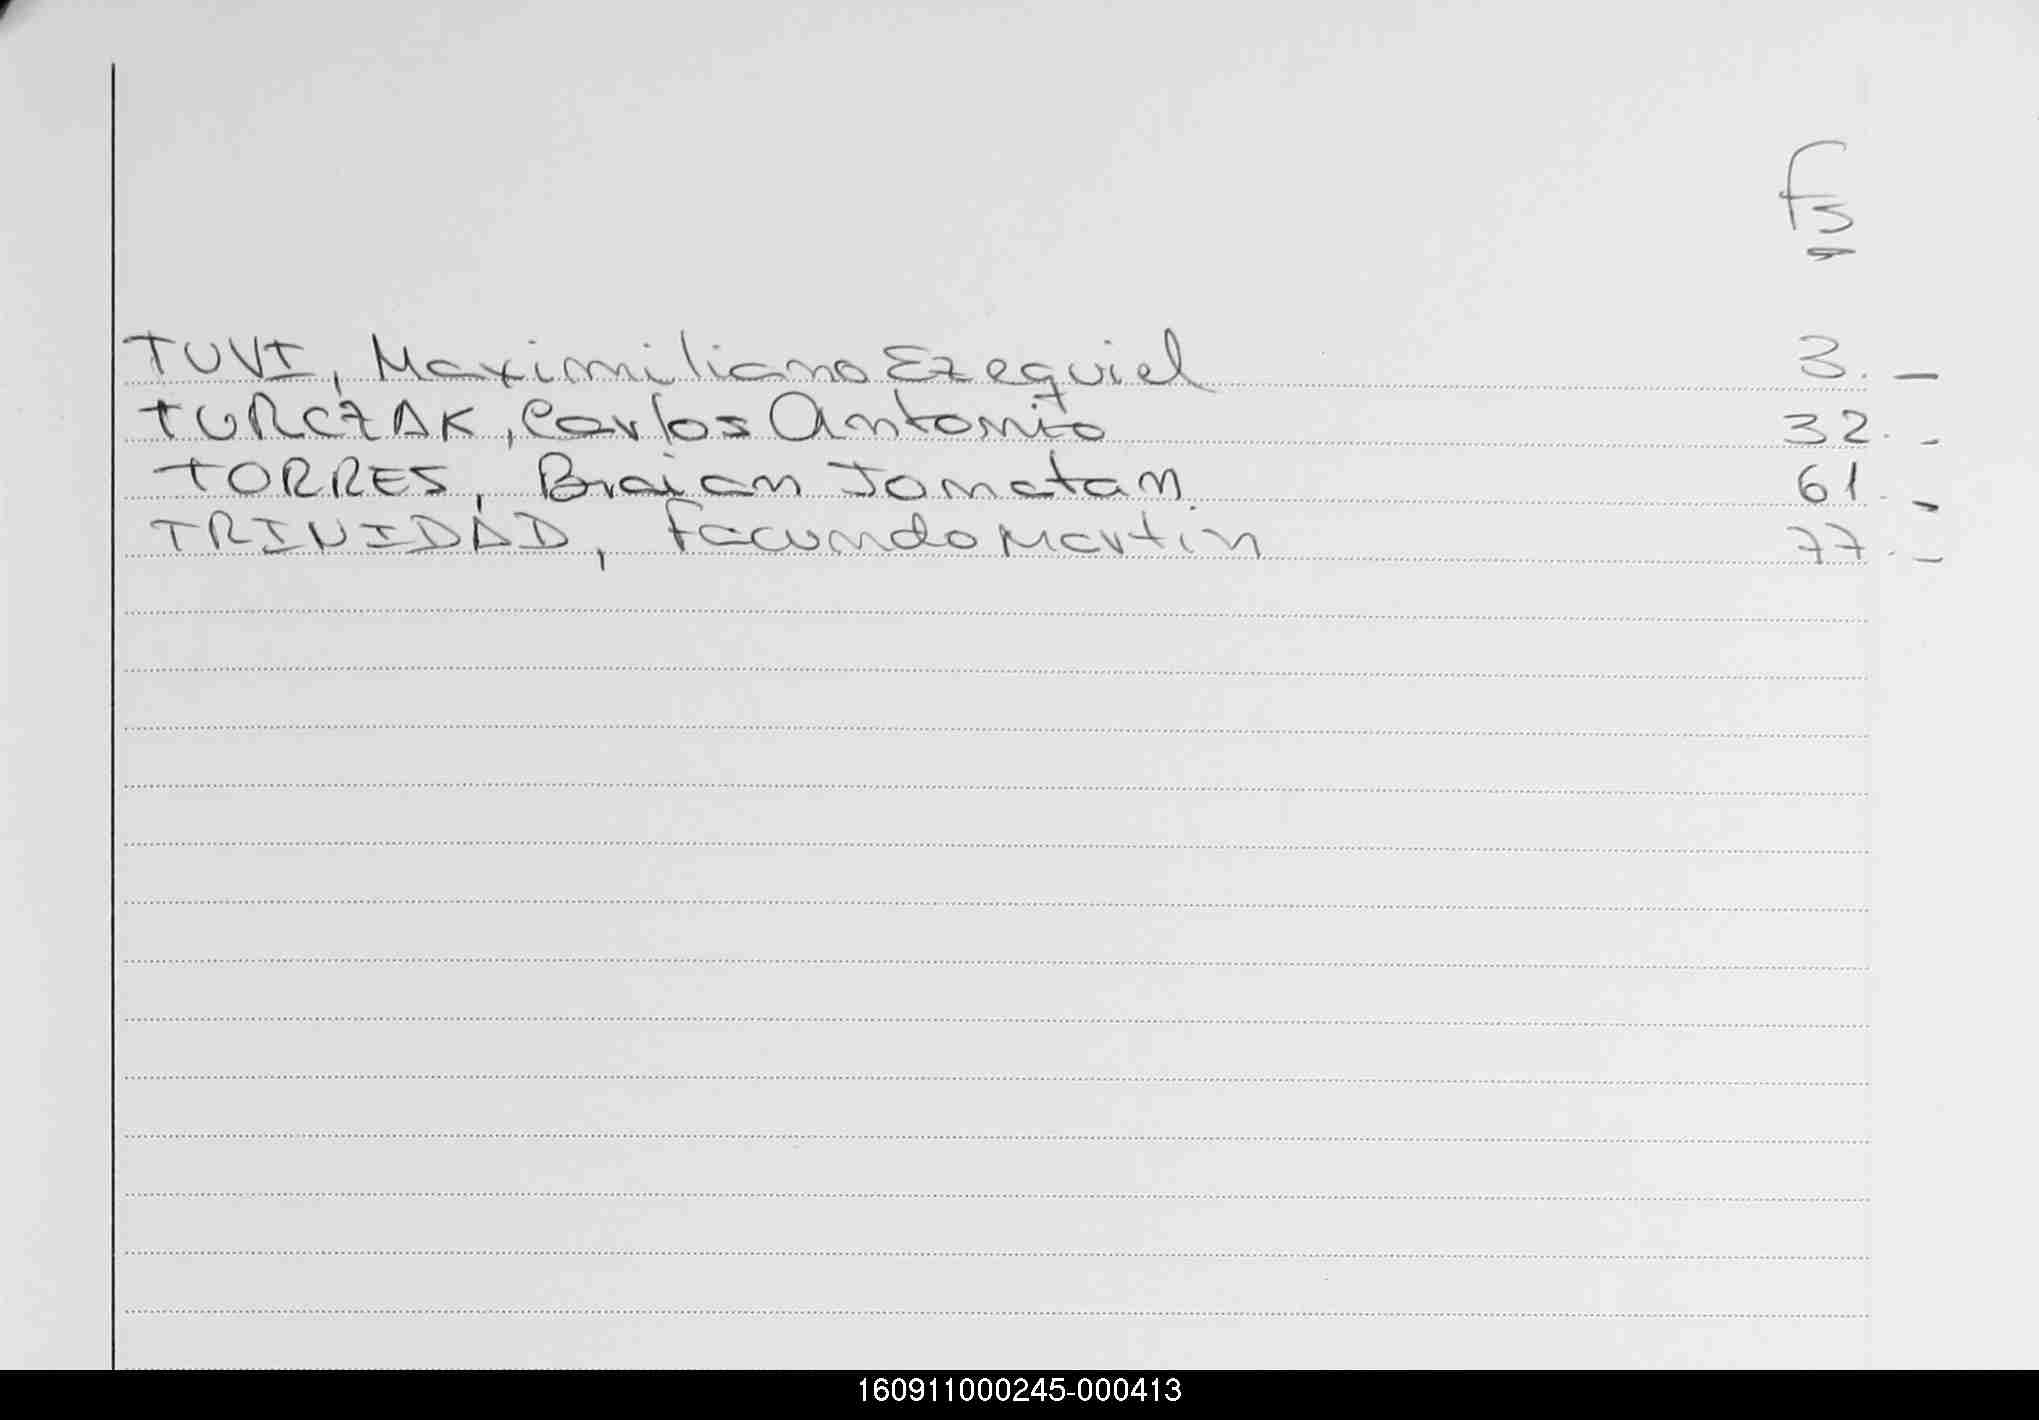 Fs
TUVI, Maximiliano Ezequiel 3. –
TURCZAK, Carlos Antonio 32. –
TORRES, Braian Jonatan. 61. –
TRINIDAD, Facundo Martin 77. –
160911000245-000413